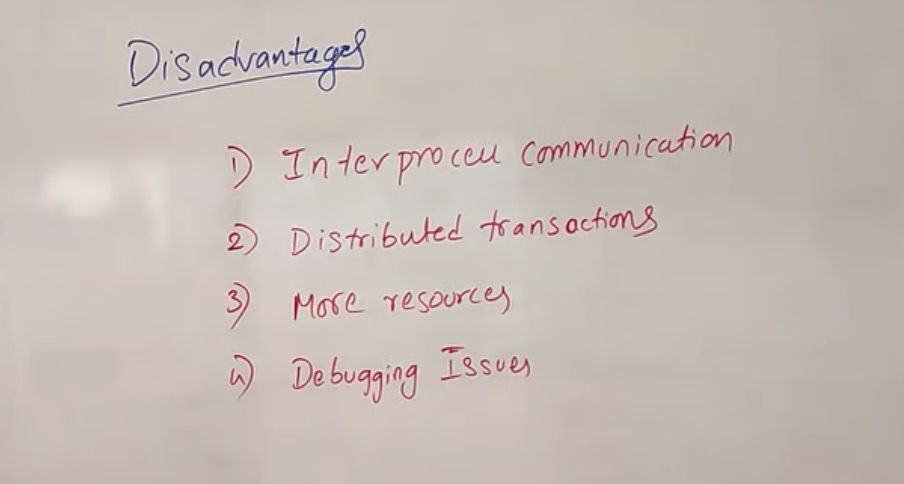 Disadvantages
1) Interprocess communication
2) Distributed transactions
3) More resources
4) Debugging Issues